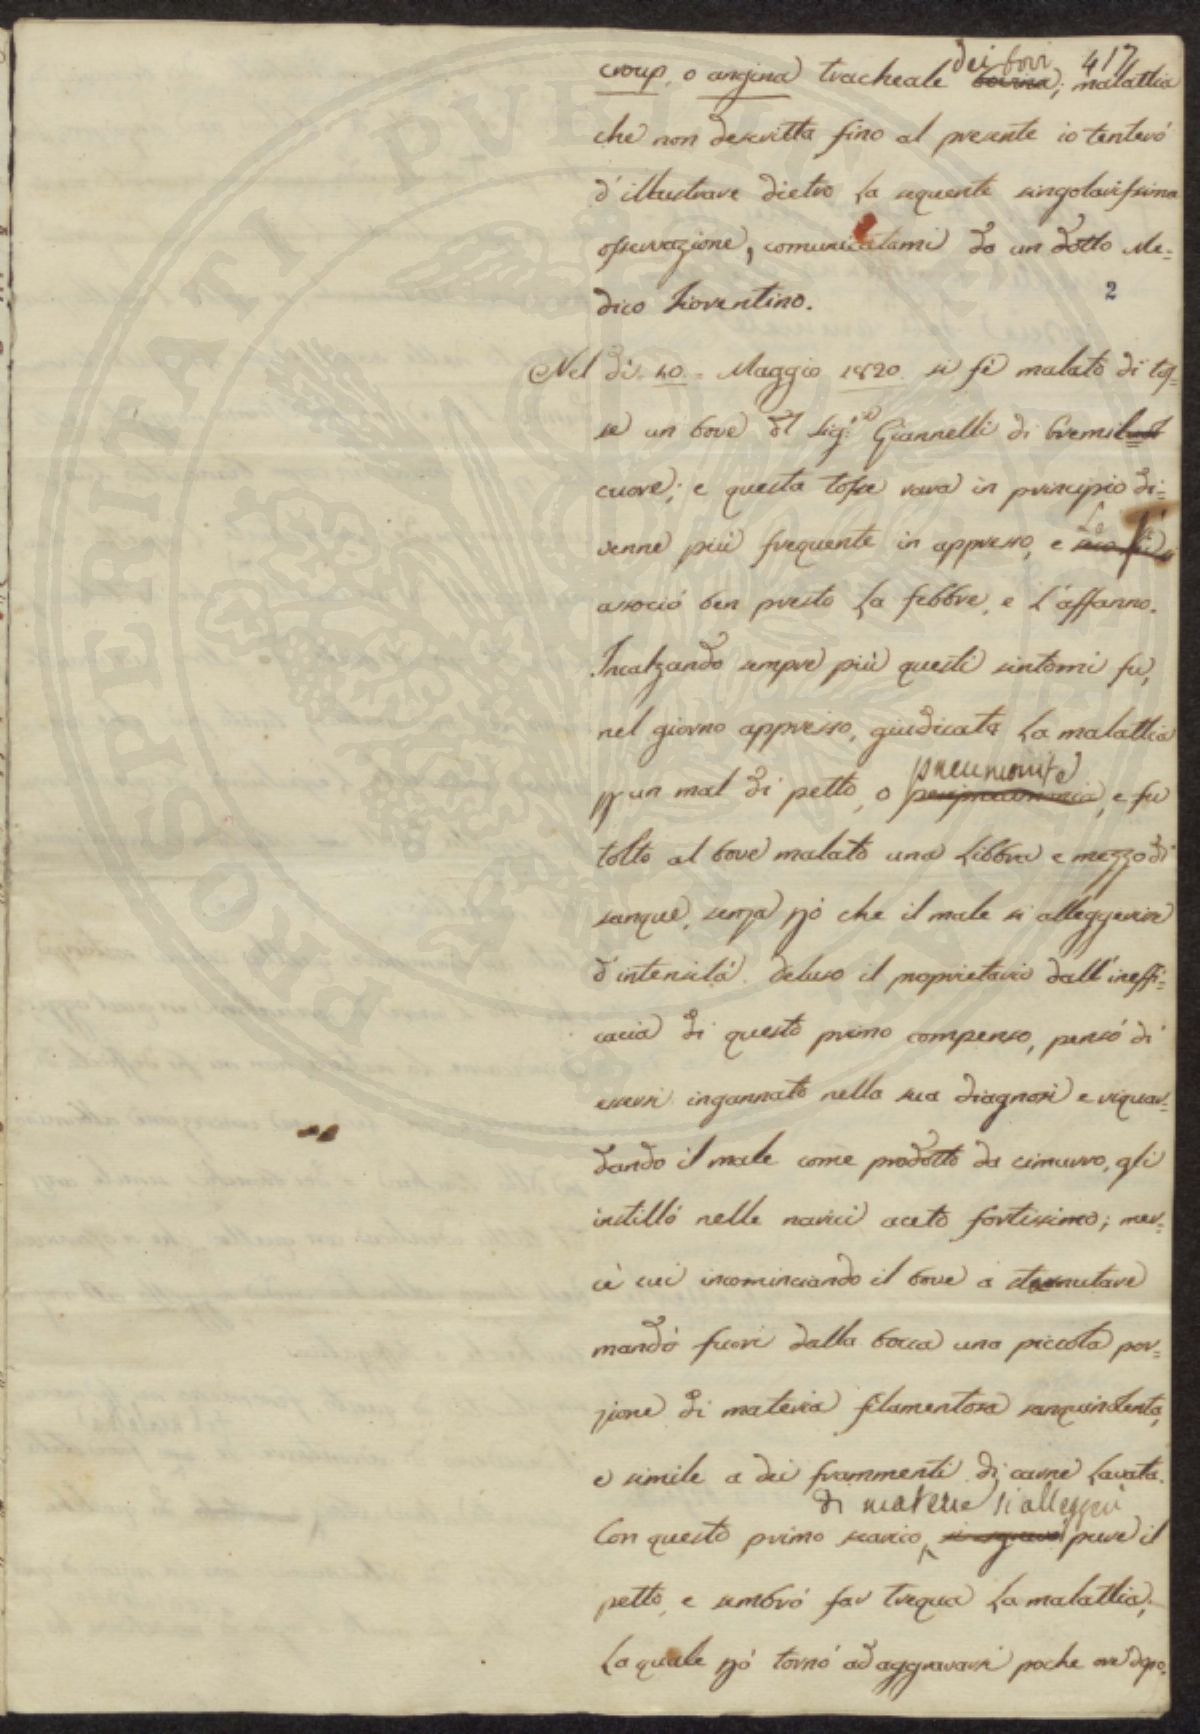 417
dei bovi
croup, o angina tracheale bovina; malattia
che non descritta fino al presente io tenterò
d'illustrare dietro la seguente singolarissima
osservazione, comunicatami da un dotto Me=
dico Fiorentino.
2
Nel dì 10. Maggio 1820. si fè malato di tos=
se un bove del Sig.r Giannelli di Gremi
cuore; e questa tosse rara in principio di=
venne più frequente in appresso, e Le si
associò ben presto la febbre, e l'affanno.
Incalzando sempre più questi sintomi fu,
nel giorno appresso, giudicata la malattia
pneumonite
p un mal di petto, o peripneumonia, e fu
tolto al bove malato una Libbra e mezzo di
sangue, senza pò che il male si alleggerire
d'intensità. Deluso il proprietario dall'ineffi=
cacia di questo primo compenso, pensò di
essersi ingannato nella sua diagnosi e riguar=
dando il male come prodotto da cimurro, gli
instillò nelle narici aceto fortissimo; mer=
cè cui incominciando il bove a sternutare
mandò fuori dalla bocca una piccola por=
zione di materia filamentosa sanguinolenta,
e simile a dei frammenti di carne lavata.
di materie si alleggerì
Con questo primo scarico, si sgravò pure il
petto, e sembrò far tregua la malattia;
la quale pò tornò ad aggravarsi poche ore dopo.
PROSPERITATI PVBLICAE